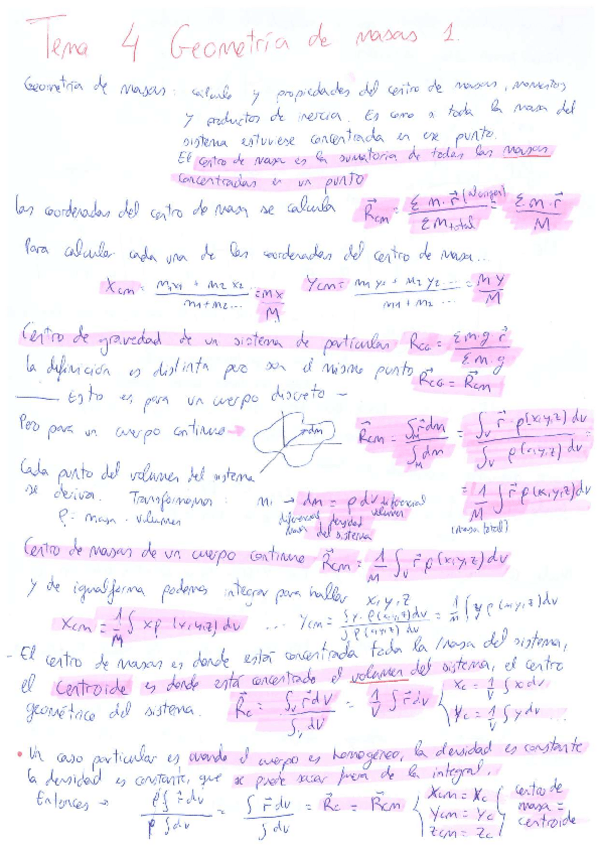 Tema 4 Geometría de masas 1.
Geometría de masas: calculo y propiedades del centro de masas, momentos
y productos de inercia. Es como si toda la masa del
sistema estuviese concentrada en ese punto.
El centro de masa es la sumatoria de todas las masas
concentradas en un punto
Las coordenadas del centro de masa se calcula R⃗cm = Σm·r⃗ (al origen) / Σm total = Σm·r⃗ / M
Para calcular cada una de las coordenadas del centro de masa...
Xcm = m1x1 + m2x2... / m1+m2... = mx / M Ycm = m1y1 + m2y2... / m1+m2... = my / M
Centro de gravedad de un sistema de particulas R⃗CG = Σm·g r⃗ / Σm·g
la definición es distinta pero son el mismo punto R⃗CG = R⃗cm
Esto es para un cuerpo discreto -
Pero para un cuerpo continuo → dm R⃗cm = ∫M r⃗dm / ∫M dm = ∫v r⃗·ρ(x,y,z)dv / ∫v ρ(x,y,z)dv
Cada punto del volumen del sistema
se deriva. Transformamos: mi → dm = ρdv diferencial volumen = 1/M ∫ r⃗ρ(x,y,z)dv
ρ = masa · volumen diferencial masa densidad del sistema (masa total)
Centro de masas de un cuerpo continuo R⃗cm = 1/M ∫v r⃗ρ(x,y,z)dv
y de igual forma podemos integrar para hallar x,y,z
Xcm = 1/M ∫ xρ(x,y,z)dv ... Ycm = ∫y·ρ(x,y,z)dv / ∫ρ(x,y,z)dv = 1/M ∫yρ(x,y,z)dv
- El centro de masas es donde está concentrada toda la masa del sistema,
el centroide es donde está concentrado el volumen del sistema, el centro
geométrico del sistema. R⃗c = ∫v r⃗dv / ∫v dv = 1/V ∫r⃗dv { xc = 1/V ∫xdv
yc = 1/V ∫ydv
• Un caso particular es cuando el cuerpo es homogéneo, la densidad es constante
la densidad es constante, que se puede sacar fuera de la integral.
Entonces → ρ∫r⃗dv / ρ∫dv = ∫r⃗dv / ∫dv = R⃗c = R⃗cm { Xcm = Xc { centro de
Ycm = Yc masa =
Zcm = Zc centroide